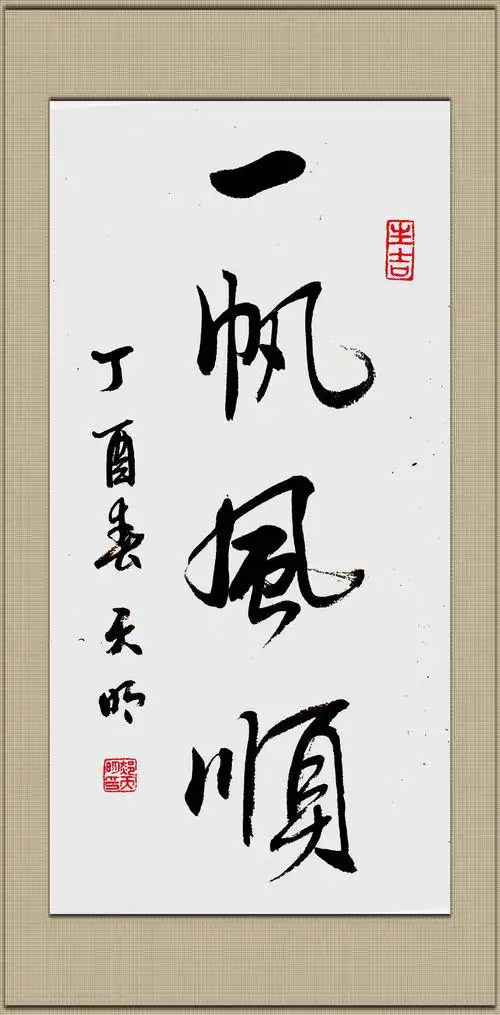 一帆風順
丁酉春天明